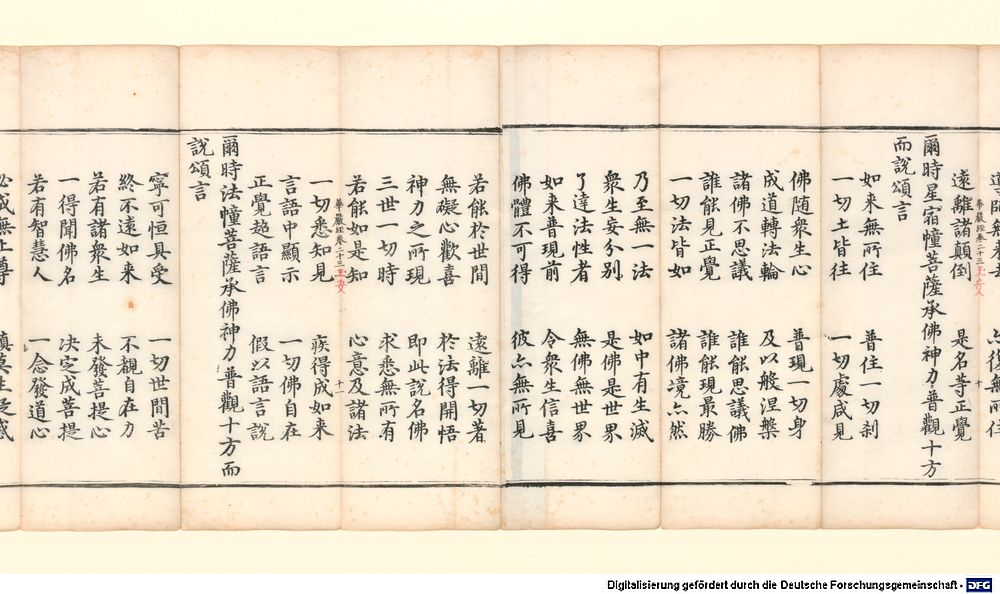 遠離諸顛倒　是名等正覺
爾時星宿幢菩薩承佛神力普觀十方
而說頌言
如來無所住　普住一切刹
一切土皆往　一切處咸見
佛隨衆生心　普現一切身
成道轉法輪　及以般涅槃
諸佛不思議　誰能思議佛
誰能見正覺　誰能現最勝
一切法皆如　諸佛境亦然
乃至無一法　如中有生滅
衆生妄分別　是佛是世界
了達法性者　無佛無世界
如來普現前　令衆生信喜
佛體不可得　彼亦無所見
若能於世間　遠離一切著
無礙心歡喜　於法得開悟
神力之所現　即此說名佛
三世一切時　求悉無所有
若能如是知　心意及諸法
華嚴經卷二十三　十一
一切悉知見　疾得成如來
言語中顯示　一切佛自在
正覺超語言　假以語言說
爾時法幢菩薩承佛神力普觀十方而
說頌言
寧可恒具受　一切世間苦
終不遠如來　不覩自在力
若有諸衆生　未發菩提心
一得聞佛名　決定成菩提
若有智慧人　一念發道心
Digitalisierung gefördert durch die Deutsche Forschungsgemeinschaft - DFG